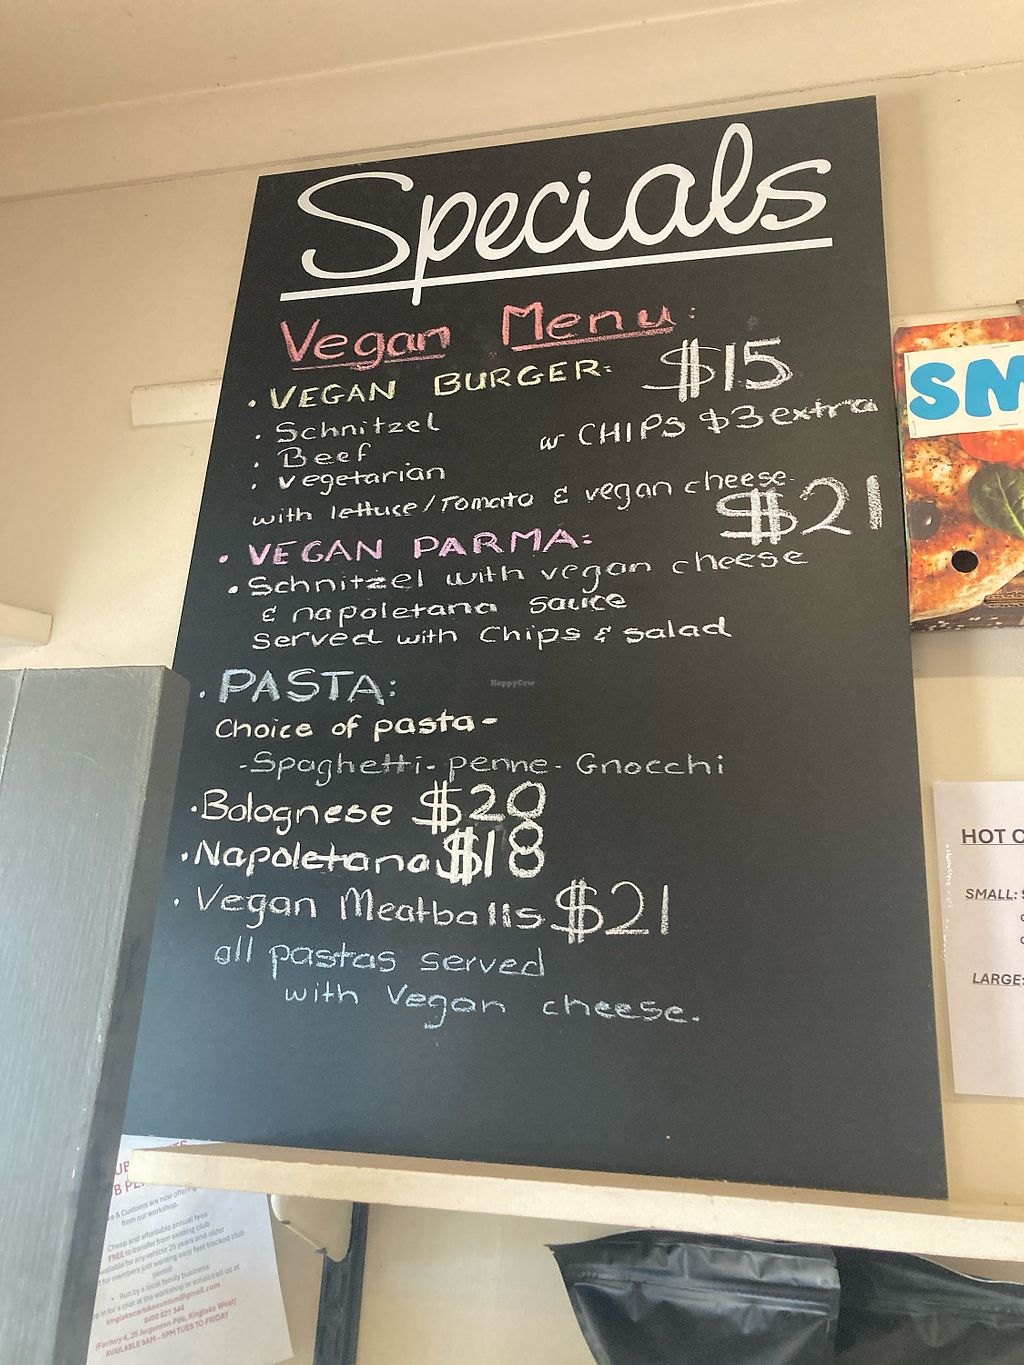 Specials
Vegan Menu:
. VEGAN BURGER: $15
. Schnitzel
w CHIPS $3 extra
. Beef
. Vegetarian
with lettuce/Tomato & vegan cheese
$21
. VEGAN PARMA:
. Schnitzel with vegan cheese
& napoletana sauce
Served with Chips & salad
. PASTA:
Choice of pasta-
-Spaghetti- penne- Gnocchi
.Bolognese $20
.Napoletana $18
. Vegan Meatballs $21
all pastas served
with Vegan cheese.
HappyCow
SM
HOT C
SMALL: S
LARGE:
& Customs are now offering
from our workshop.
Cheap and affordable annual fees
FREE to transfer from existing club
available for any vehicle 25 years and older
for members just wanting easy fast tracked club
permit
Run by a local family business
in for a chat at the workshop or email/call us at
kinglakecarbikecustom@gmail.com
0400 621 344
(Factory 4, 25 Jorgensen Pde, Kinglake West)
AVAILABLE 9AM - 5PM TUES TO FRIDAY